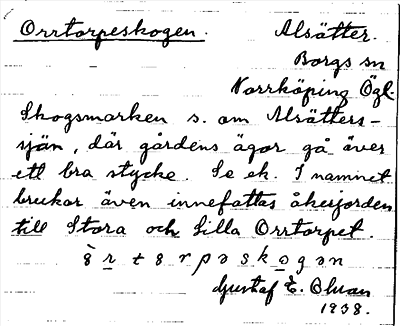 Orrtorpeskogen. Alsätter.
Borgs sn
Norrköping Ögl.
Skogsmarken s. om Alsätters-
sjön, där gårdens ägor gå över
ett bra stycke. Se ek. I namnet
brukar även innefattas åkerjorden
till Stora och Lilla Orrtorpet.
Gustaf E. Ohman
1938.